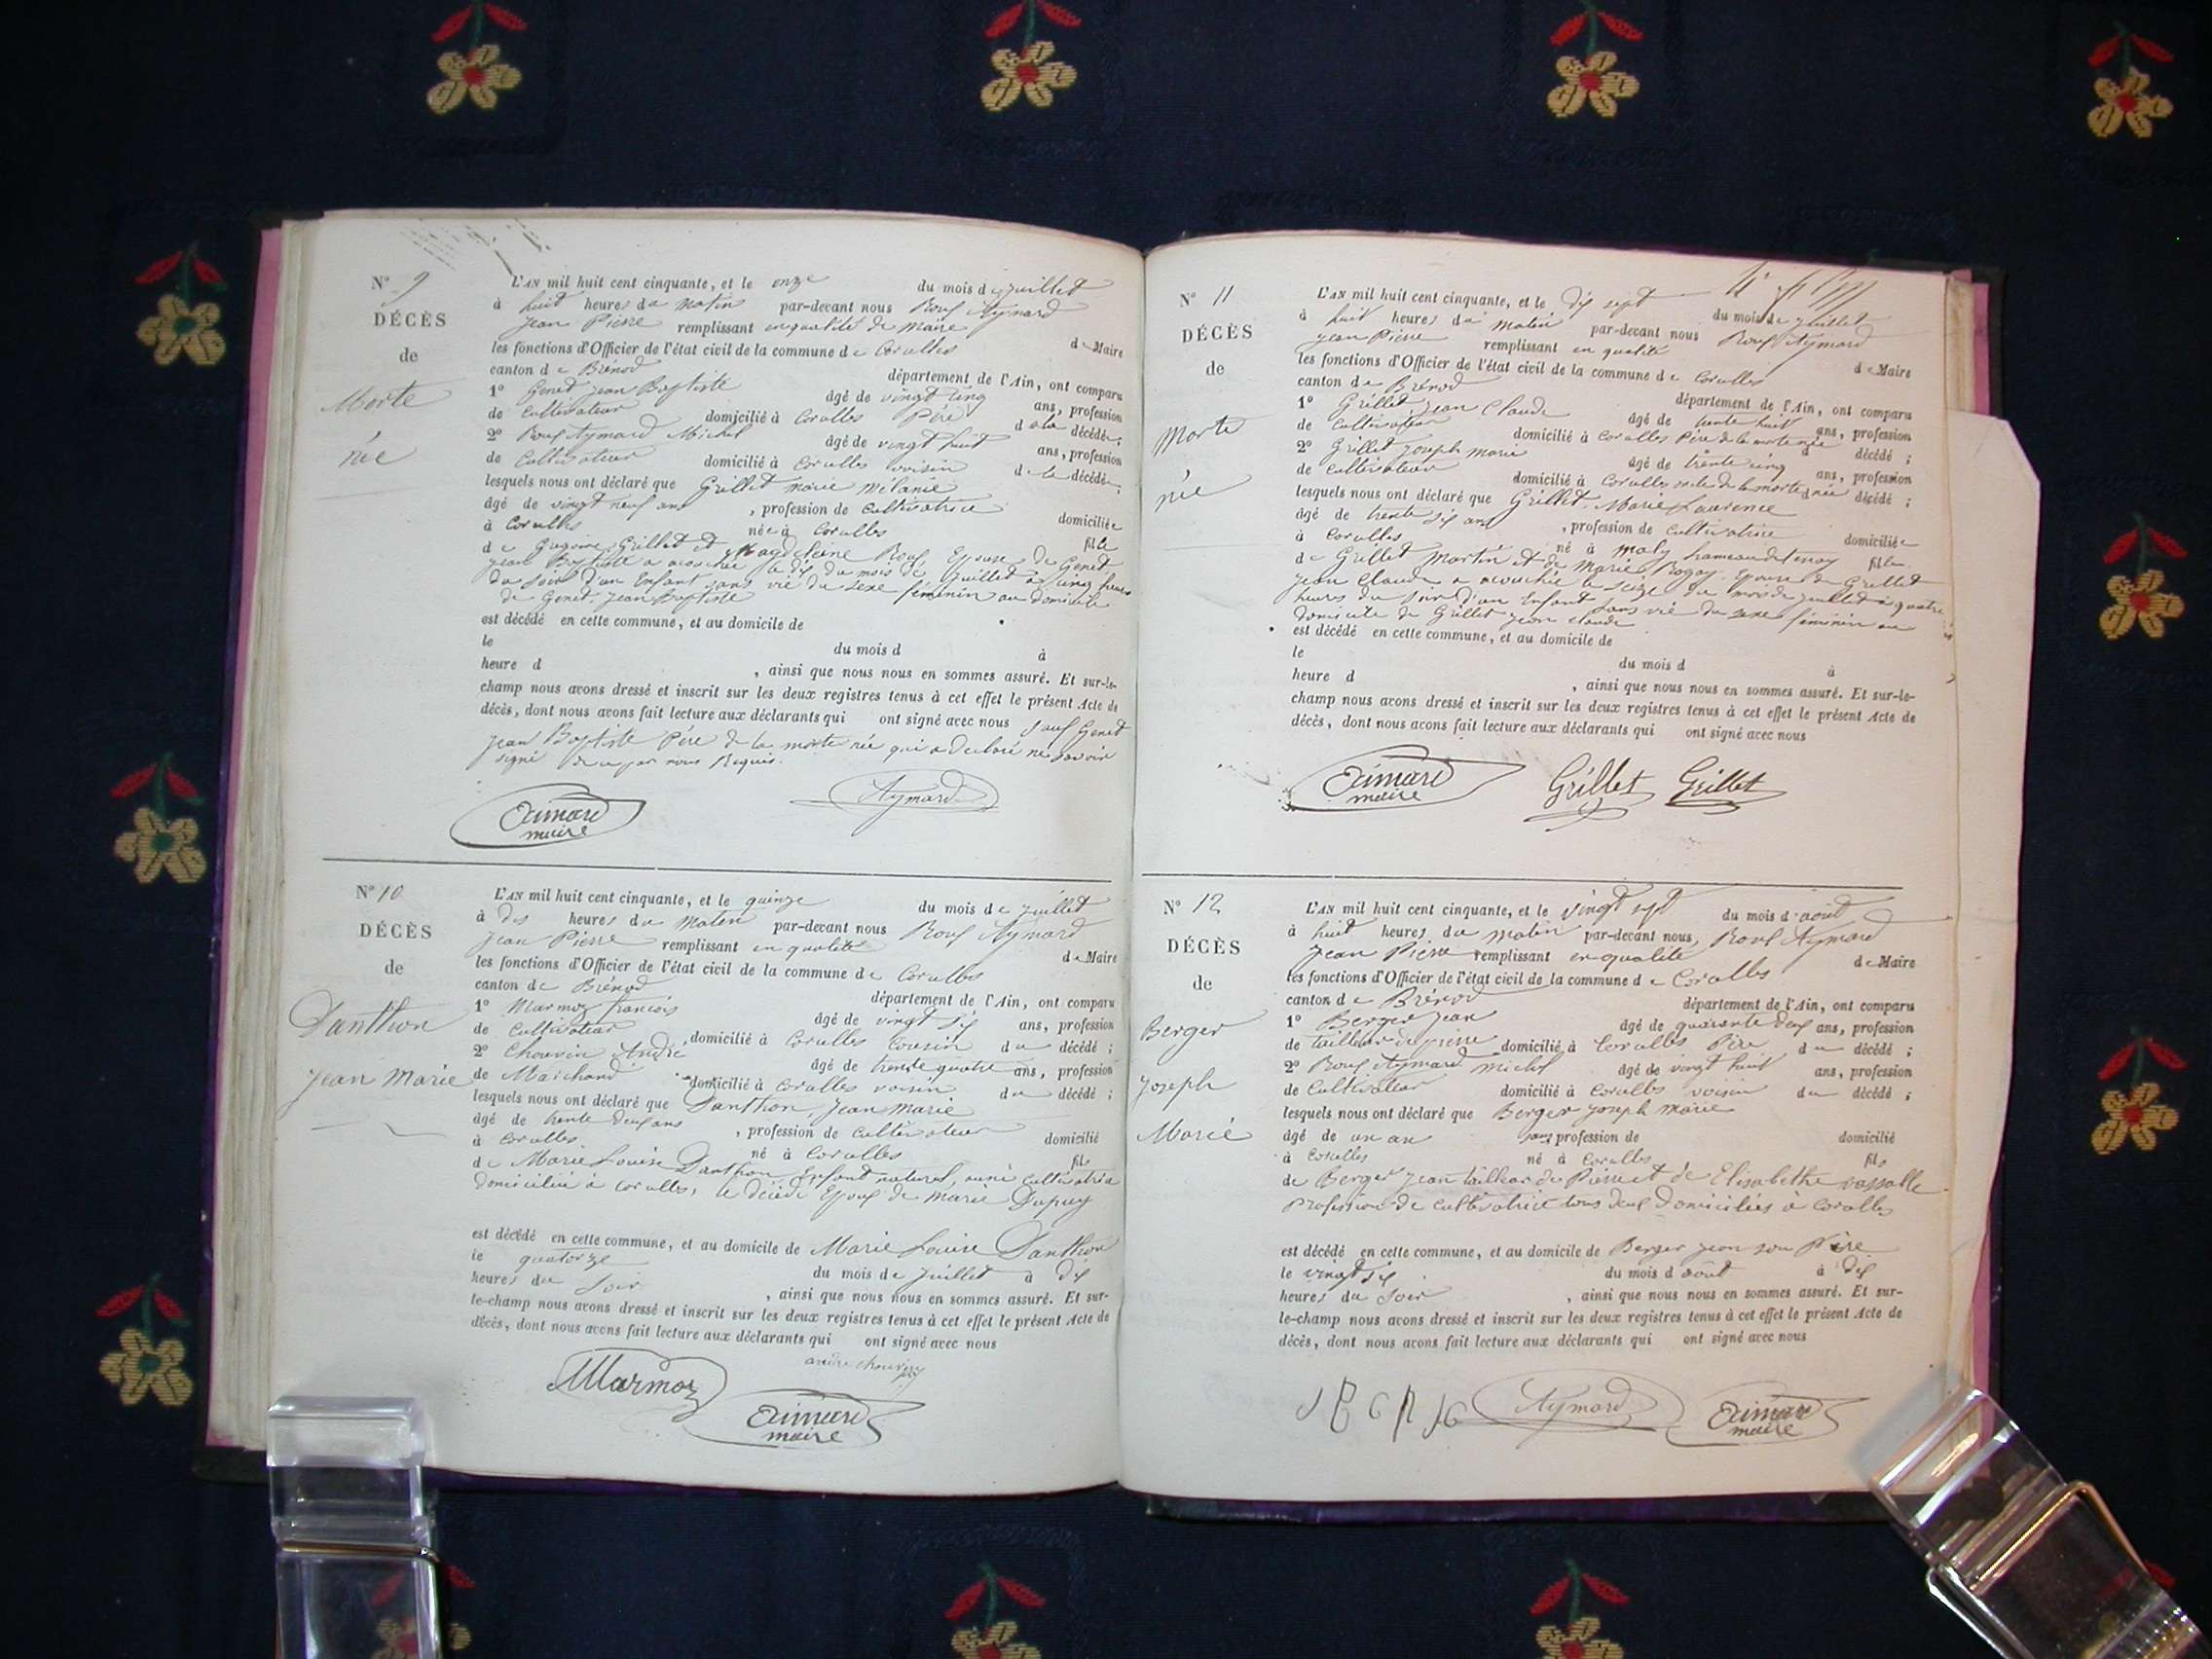 N° 9
DÉCÈS
de
Morte
née
L'AN mil huit cent cinquante, et le onze du mois de juillet
à huit heures du matin par-devant nous Roux Aymard
Jean Pierre remplissant en qualité de Maire
les fonctions d'Officier de l'état civil de la commune de Corcelles de Maire
canton de Brénod département de l'Ain, ont comparu
1° Genet Jean Baptiste âgé de vingt cinq ans, profession
de Cultivateur domicilié à Corcelles Père de la décédée;
2° Roux Aymard Michel âgé de vingt huit ans, profession
de Cultivateur domicilié à Corcelles voisin de la décédée;
lesquels nous ont déclaré que Grillet marie mélanie
âgé de vingt neuf ans, profession de Cultivatrice domiciliée
à Corcelles née à Corcelles fille
de Gregoire Grillet et Magdeleine Roux Epouse de Genet
Jean Baptiste a accouchée le dix du mois de Juillet à cinq heures
du soir d'un Enfant sans vie du sexe féminin au domicile
de Genet Jean Baptiste
est décédé en cette commune, et au domicile de
le du mois d à
heure d , ainsi que nous nous en sommes assuré. Et sur-le-
champ nous avons dressé et inscrit sur les deux registres tenus à cet effet le présent Acte de
décès, dont nous avons fait lecture aux déclarants qui ont signé avec nous sauf Genet
Jean Baptiste Père de la morte née qui a declaré ne savoir
signé de ce par nous Requis.
Aimard
maire
Aymard
N° 10
DÉCÈS
de
Danthon
Jean Marie
L'AN mil huit cent cinquante, et le quinze du mois de juillet
à dix heures du matin par-devant nous Roux Aymard
Jean Pierre remplissant en qualité de Maire
les fonctions d'Officier de l'état civil de la commune de Corcelles
canton de Brénod département de l'Ain, ont comparu
1° Marmoz francois âgé de vingt six ans, profession
de Cultivateur domicilié à Corcelles Cousin du décédé;
2° Chouvin André âgé de trente quatre ans, profession
de Marchand domicilié à Corcelles voisin du décédé;
lesquels nous ont déclaré que Danthon, Jean marie
âgé de trente deux ans, profession de Cultivateur domicilié
à Corcelles né à Corcelles fils
de Marie Louise Danthon Enfant naturel, cultivatrice
domiciliée à Corcelles, le décédé Epoux de marie Dupuy
est décédé en cette commune, et au domicile de Marie Louise Danthon
le quatorze du mois de juillet à dix
heures du soir , ainsi que nous nous en sommes assuré. Et sur-
le-champ nous avons dressé et inscrit sur les deux registres tenus à cet effet le présent Acte de
décès, dont nous avons fait lecture aux déclarants qui ont signé avec nous
Marmoz
andré chouvin
Aimard
maire
N° 11
DÉCÈS
de
Morte
née
L'AN mil huit cent cinquante, et le dix sept du mois de juillet
à huit heures du matin par-devant nous Roux Aymard
Jean Pierre remplissant en qualité de Maire
les fonctions d'Officier de l'état civil de la commune de Corcelles
canton de Brénod département de l'Ain, ont comparu
1° Grillet Jean Claude âgé de trente huit ans, profession
de Cultivateur domicilié à Corcelles Père de la morte née décédé;
2° Grillet Joseph marie âgé de trente cinq ans, profession
de cultivateur domicilié à Corcelles oncle de la morte née décédé;
lesquels nous ont déclaré que Grillet, Marie Laurence
âgé de trente six ans, profession de cultivatrice domiciliée
à Corcelles né à maly hameau de fille
de Grillet Martin et de Marie Epouse de Grillet
Jean Claude a accouchée le seize du mois de juillet à quatre
heures du soir d'un Enfant sans vie du sexe féminin au
domicile de Grillet Jean Claude
est décédé en cette commune, et au domicile de
le du mois d à
heure d , ainsi que nous nous en sommes assuré. Et sur-le-
champ nous avons dressé et inscrit sur les deux registres tenus à cet effet le présent Acte de
décès, dont nous avons fait lecture aux déclarants qui ont signé avec nous
Aimard
maire
Grillet Grillet
N° 12
DÉCÈS
de
Berger
Joseph
Marie
L'AN mil huit cent cinquante, et le vingt sept du mois d'août
à huit heures du matin par-devant nous, Roux Aymard
Jean Pierre remplissant en qualité de Maire
les fonctions d'Officier de l'état civil de la commune de Corcelles
canton de Brénod département de l'Ain, ont comparu
1° Berger Jean âgé de quarante deux ans, profession
de tailleur de pierre domicilié à Corcelles Père du décédé;
2° Roux Aymard michel âgé de vingt huit ans, profession
de Cultivateur domicilié à Corcelles voisin du décédé;
lesquels nous ont déclaré que Berger Joseph marie
âgé de un an sans profession de domicilié
à Corcelles né à Corcelles fils
de Berger Jean tailleur de Pierre et de Elisabethe vassalle
profession de cultivatrice tous deux domiciliés à Corcelles
est décédé en cette commune, et au domicile de Berger Jean son Père
le vingt six du mois d'août à dix
heures du soir , ainsi que nous nous en sommes assuré. Et sur-
le-champ nous avons dressé et inscrit sur les deux registres tenus à cet effet le présent Acte de
décès, dont nous avons fait lecture aux déclarants qui ont signé avec nous
Aymard
Aimard
maire